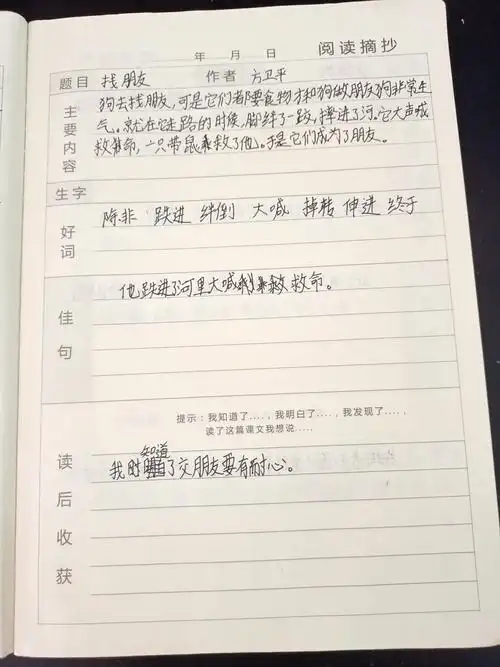 年 月 日 阅读摘抄
题目 找朋友 作者 方卫平
主要内容
狗去找朋友,可是它们都要食物才和狗做朋友狗非常生
气。就在它迷路的时候,脚绊了一跤,掉进了河。它大声喊
救命,一只带鼠来救了他。于是它们成为了朋友。
生字
好词
除非 跌进 绊倒 大喊 掉转 伸进 终于
佳句
他跌进了河里大喊救命。
提示:我知道了....,我明白了....,我发现了....,
读了这篇课文我想说.....
读后收获
知道
我时了交朋友要有耐心。